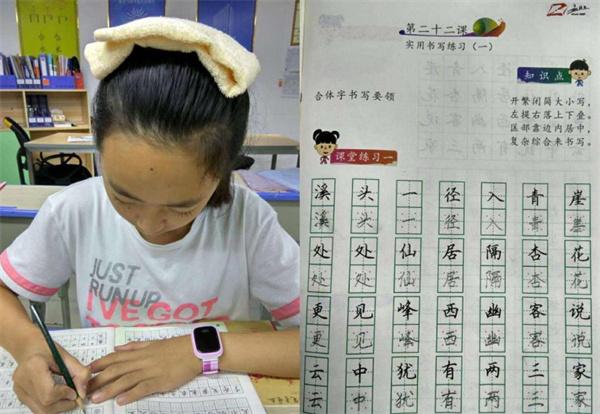 JUST
RUN UP
I'VE GOT
第二十二课
实用书写练习（一）
知识点
合体字书写要领
开繁闭简大小写，
左提右落上下叠。
匡部靠边内居中，
复杂综合来书写。
课堂练习一
溪头一径入青崖
溪头一径入青崖
处处仙居隔杏花
处处仙居隔杏花
更见峰西幽客说
更见峰西幽客说
云中犹有两三家
云中犹有两三家